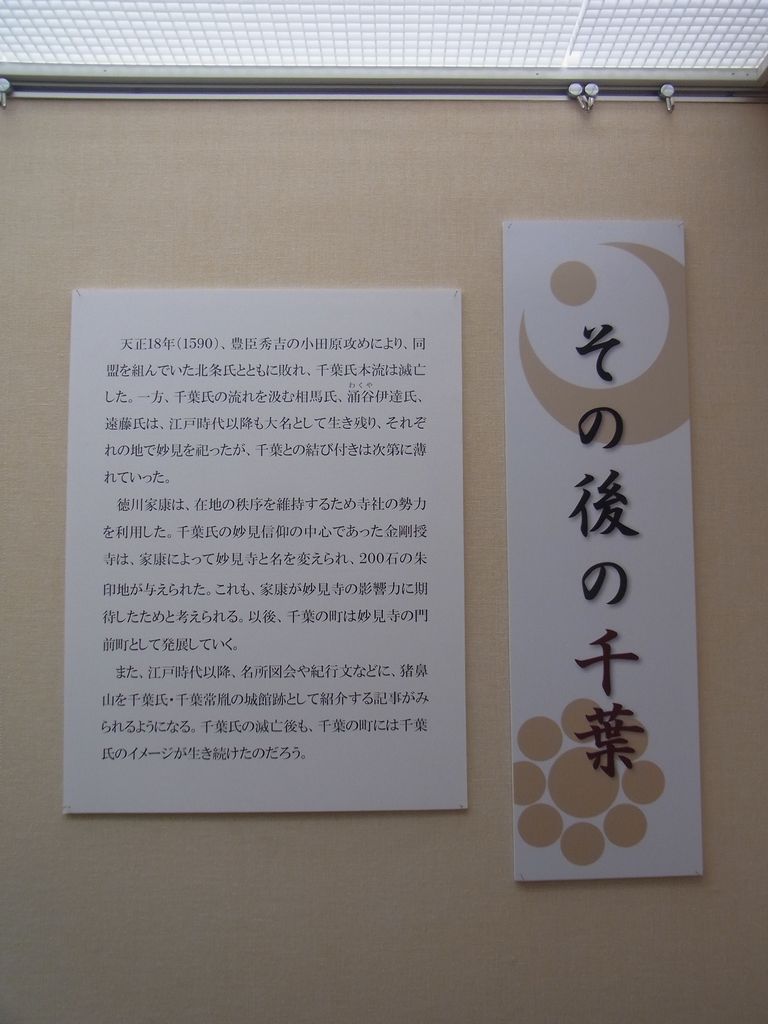 その後の千葉
天正18年(1590)、豊臣秀吉の小田原攻めにより、同
盟を組んでいた北条氏とともに敗れ、千葉氏本流は滅亡
した。一方、千葉氏の流れを汲む相馬氏、涌谷伊達氏、
わくや
遠藤氏は、江戸時代以降も大名として生き残り、それぞ
れの地で妙見を祀ったが、千葉との結び付きは次第に薄
れていった。
徳川家康は、在地の秩序を維持するため寺社の勢力
を利用した。千葉氏の妙見信仰の中心であった金剛授
寺は、家康によって妙見寺と名を変えられ、200石の朱
印地が与えられた。これも、家康が妙見寺の影響力に期
待したためと考えられる。以後、千葉の町は妙見寺の門
前町として発展していく。
また、江戸時代以降、名所図会や紀行文などに、猪鼻
山を千葉氏・千葉常胤の城館跡として紹介する記事がみ
られるようになる。千葉氏の滅亡後も、千葉の町には千葉
氏のイメージが生き続けたのだろう。